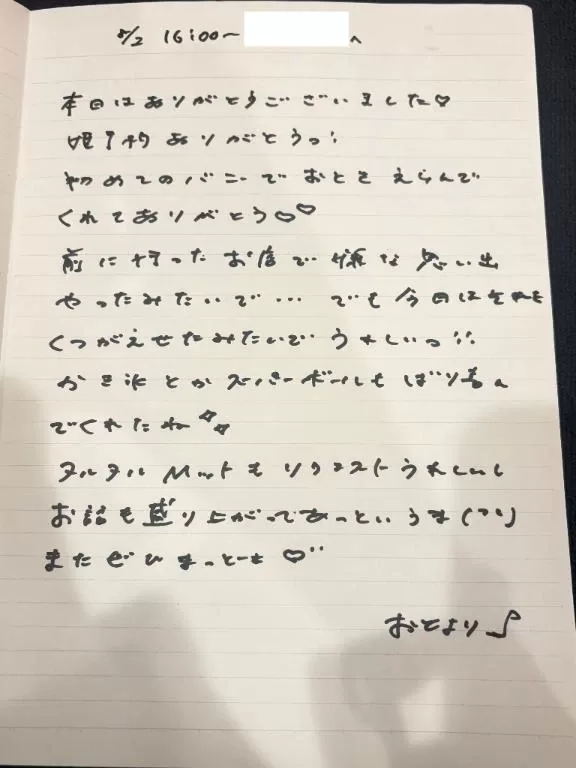 7/2 16:00〜 へ
本日はありがとうございました♡
姫予約ありがとうっ!
初めてのバニーでおとをえらんで
くれてありがとう♡♡
前に行ったお店で嫌な思い出
やったみたいで… でも今日はそれを
くつがえせたみたいでうれしいっ!!
かき氷とかスーパーボールもばり喜ん
でくれたね
ヌルヌルマットもリクエストうれしいし
お話も盛り上がってあっというま(^^)
またぜひまっとーも♡
おとより♪